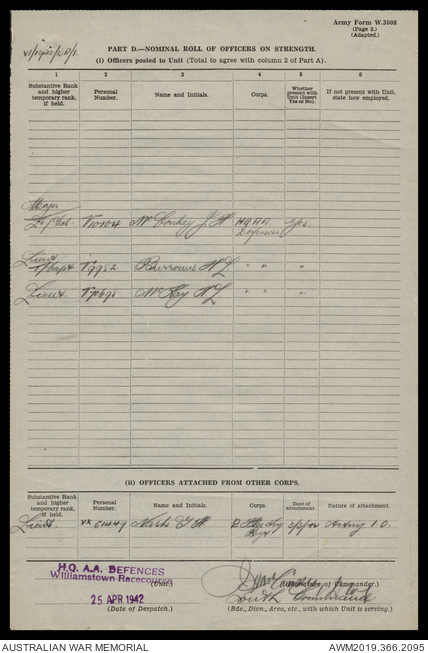 Army Form W.3008
(Page 2.)
(Adapted.)
PART D.—NOMINAL ROLL OF OFFICERS ON STRENGTH.
(i) Officers posted to Unit (Total to agree with column 2 of Part A).
1 2 3 4 5 6
Substantive Rank and higher temporary rank, if held. Personal Number. Name and Initials. Corps. Whether present with Unit (Insert Yes or No). If not present with Unit, state how employed.
Major
H.Q. A.A. Yes
Defences
Lieut
Burrowes " " "
Lieut. McKay " " "
(ii) OFFICERS ATTACHED FROM OTHER CORPS.
Substantive Rank and higher temporary rank, if held. Personal Number. Name and Initials. Corps. Date of attachment. Nature of attachment.
Lieut VX Acting I.O.
Regt
H.Q. A.A. DEFENCES
Williamstown Racecourse
(Unit.) (Signature of Commander.)
25 APR 1942
(Date of Despatch.) (Bde., Divn., Area, etc., with which Unit is serving.)
AUSTRALIAN WAR MEMORIAL AWM2019.366.2095